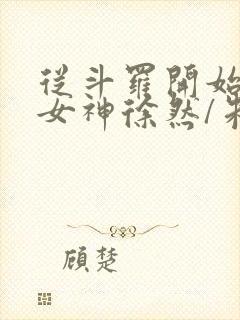 從斗羅開始
女神徐然/朱
顧楚